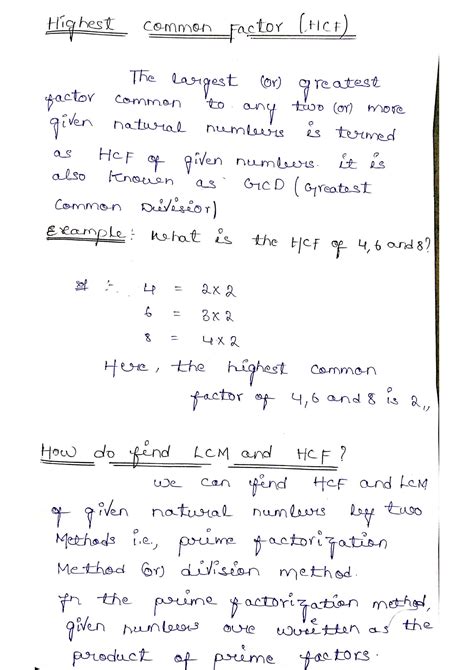 Highest common Factor (HCF)
The largest (or) greatest
factor common to any two (or) more
given natural numbers is termed
as HCF of given numbers. it is
also known as GCD (Greatest
Common Division)
Example: What is the HCF of 4,6 and 8?
:- 4 = 2x2
6 = 3x2
8 = 4x2
Here, the highest common
factor of 4,6 and 8 is 2,,
How do find LCM and HCF?
we can find HCF and LCM
of given natural numbers by two
Methods i.e., prime factorization
Method (or) division method.
In the prime factorization method,
given numbers are written as the
product of prime factors.